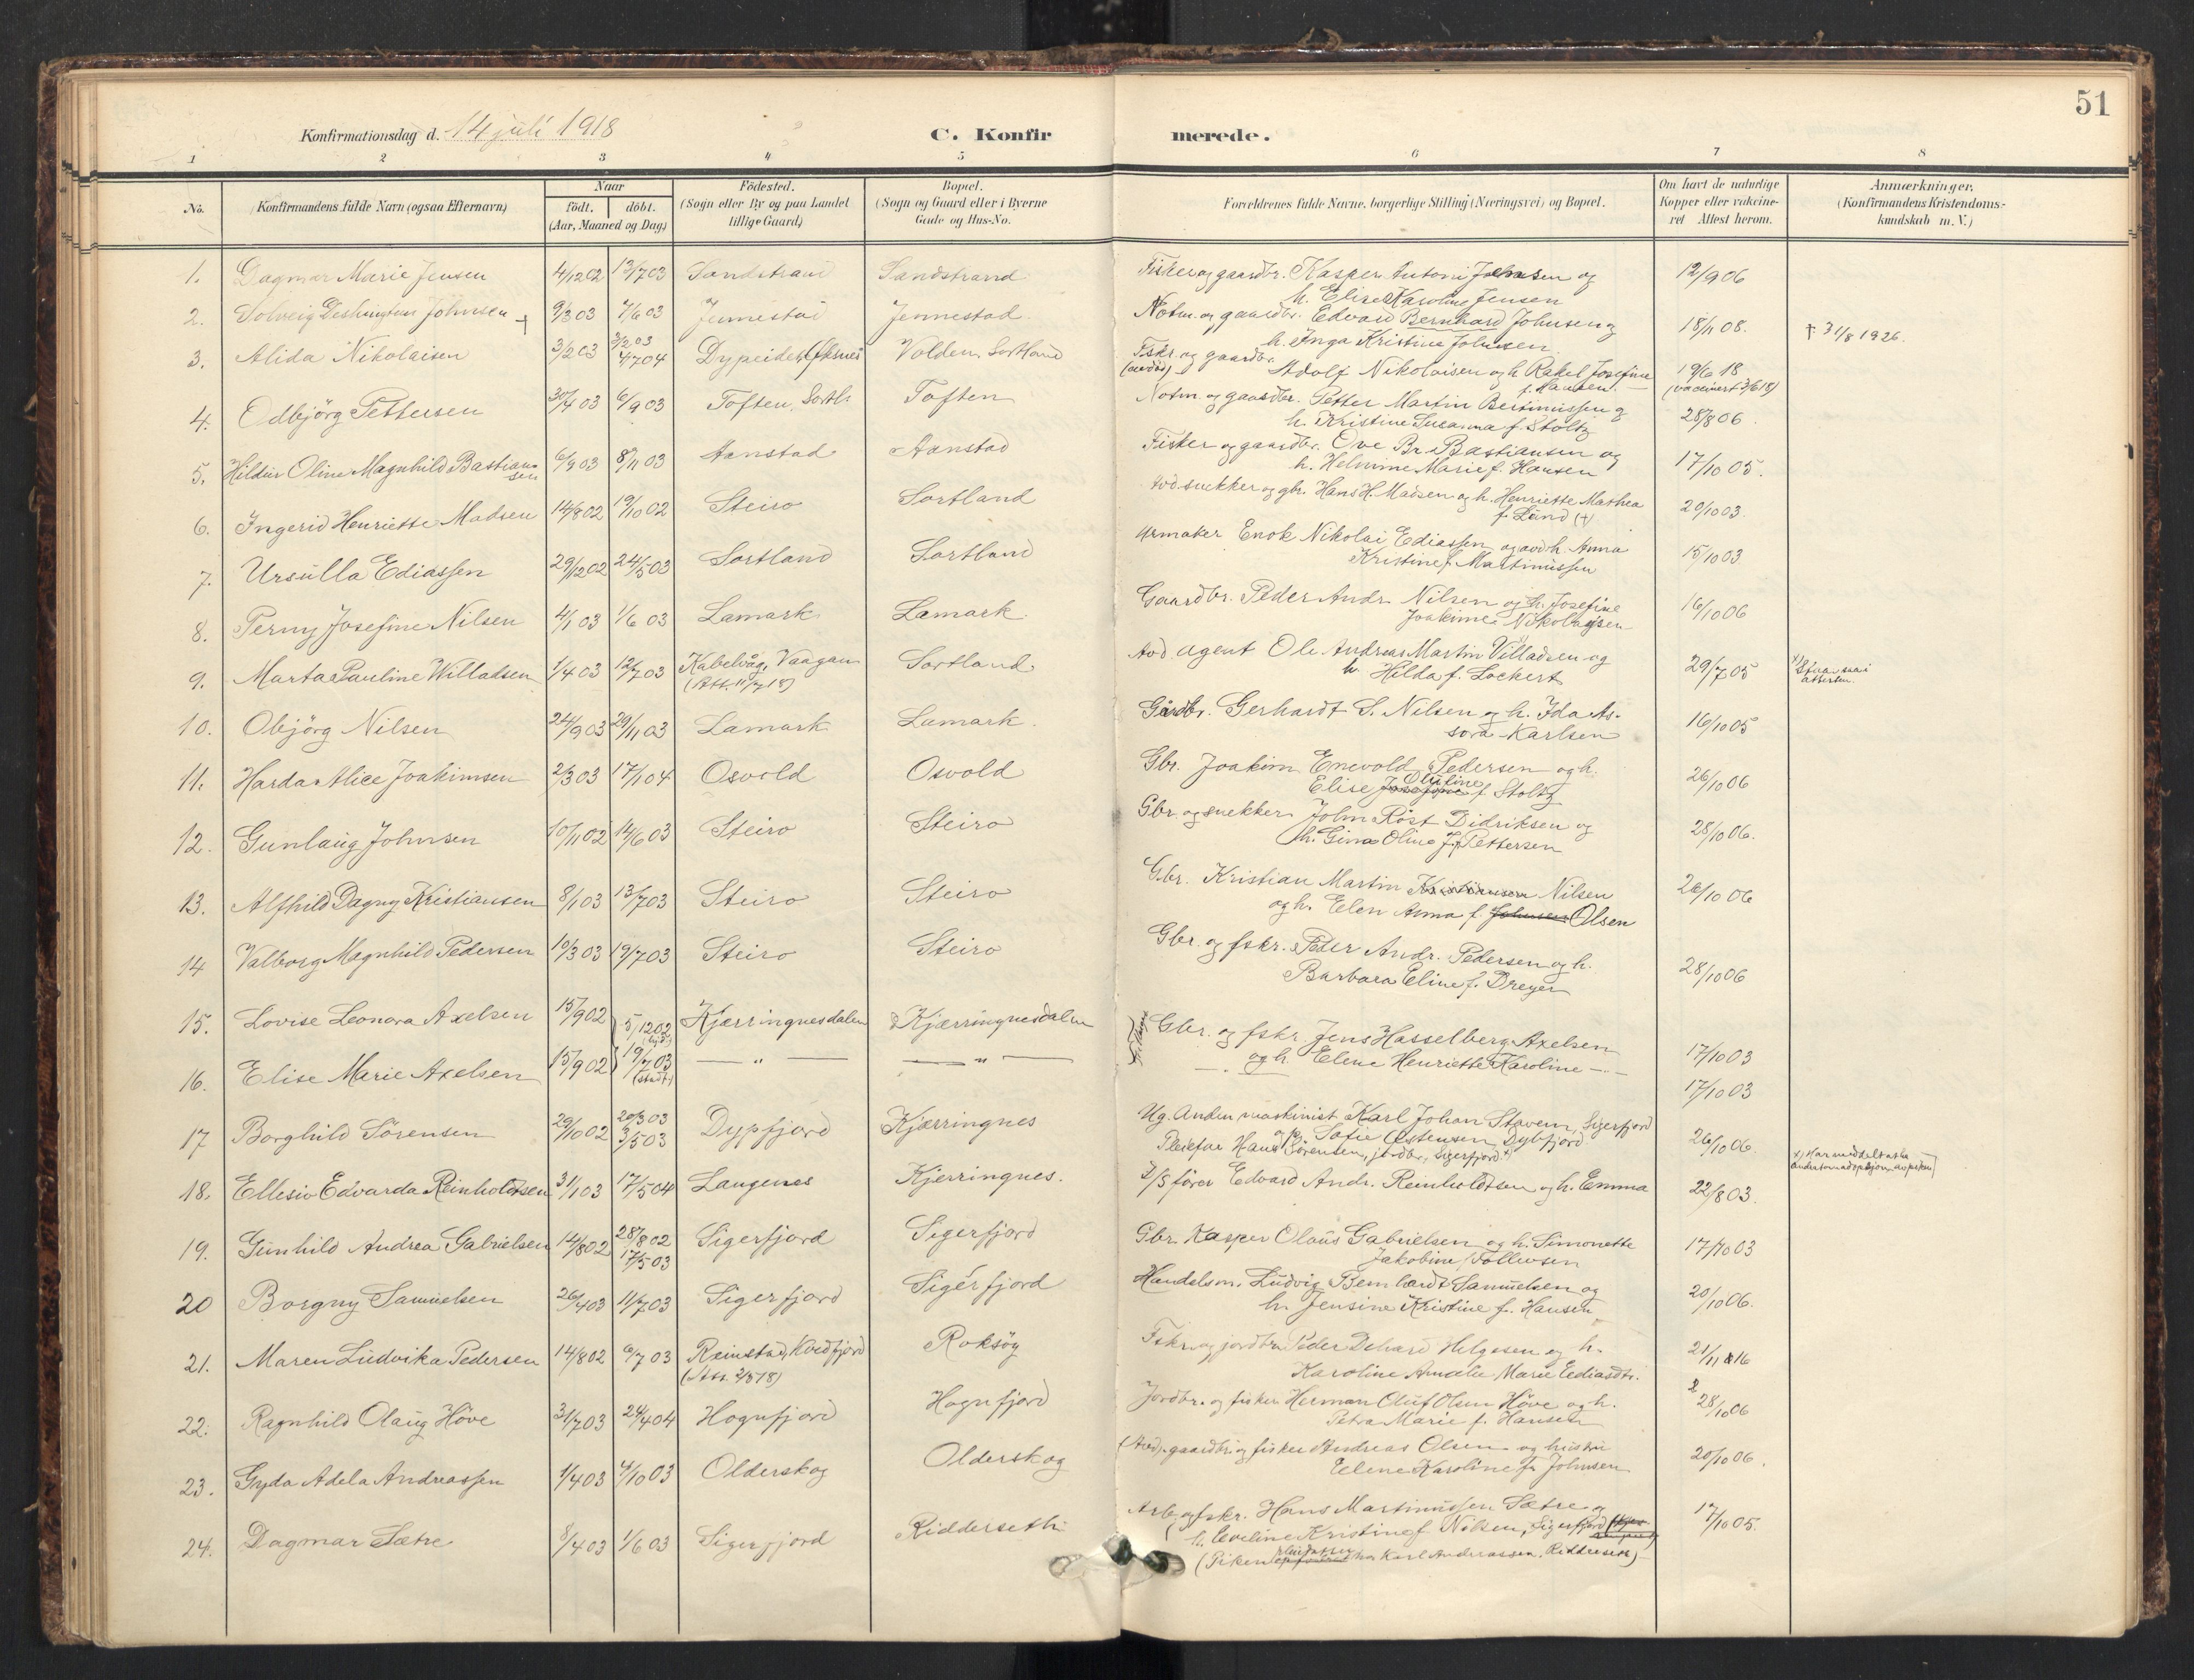 51
Konfirmationsdag d. 14 juli 1918
C. Konfirmerede.
1 2 3 4 5 6 7 8
No.
Konfirmandens fulde Navn (ogsaa Efternavn)
Naar
født. døbt.
(Aar, Maaned og Dag)
Födested.
(Sogn eller By og paa Landet
tillige Gaard)
Bopæl.
(Sogn og Gaard eller i Byerne
Gade og Hus-No.
Forældrenes fulde Navne, borgerlige Stilling (Næringsvei) og Bopæl.
Om havt de naturlige
Kopper eller vakcine-
ret Attest herom.
Anmærkninger.
(Konfirmandens Kristendoms-
kundskab m. V.)
1. Dagmar Marie Jensen 4/12 02 13/7 03 Sandstrand Sandstrand Fisker og gaardbr. Kasper Antoni Jensen og 12/9 06
h. Elise Karoline Jensen
2. Solveig Johnsen + 9/3 03 7/6 03 Jennestad Jennestad. Notm. og gaardbr. Edvard Bernhard Johnsen og 18/11 08. † 31/8 1926.
h. Inga Kristine Johnsen
3. Alida Nikolaisen 3/2 03 3/2 03 4/7 04 Dypeidet, Øksnes Volden, Sortland Fskr. og gaardbr. Adolf Nikolaisen og h. Rakel Josefine 19/6 18
(avdöd) f. Hansen. (vaccinert 3/6 18)
4. Odbjörg Pettersen 30/4 03 6/9 03 Toften, Sortl. Toften Notm. og gaardbr. Petter Martin Bertinussen og 28/8 06
h. Kristine Susanna f. Stoltz
5. Hildur Oline Magnhild Bastiansen 6/9 03 8/11 03 Aanstad Aanstad Fisker og gaardbr. Ove Br. Bastiansen og 17/10 05.
h. Helmine Marie f. Hansen
6. Ingerid Henriette Madsen 14/8 02 19/10 02 Steiro Sortland Avd. snekker og gbr. Hans H. Madsen og h. Henriette Mathea 20/10 03
f. Lund (+)
7. Ursulla Ediassen 29/12 02 24/5 03 Sortland Sortland Urmaker Enok Nikolai Ediassen og avd. h. Anna 15/10 03
Kristine f. Martinussen
8. Perny Josefine Nilsen 4/1 03 1/6 03 Lamark Lamark Gaardbr. Peder Andr. Nilsen og h. Josefine 16/10 06
Joakime Nikolaysen
9. Marta Pauline Willadsen 1/4 03 12/7 03 Kabelvåg, Vaagan Sortland Avd. agent Ole Andreas Martin Villadsen og 29/7 05
(Att. 11/7 18) h. Hilda f. Lockert
10. Objörg Nilsen 24/9 03 29/11 03 Lamark Lamark. Gårdbr. Gerhardt S. Nilsen og h. Ida As- 16/10 05
sora Karlsen
11. Harda Alice Joakimsen 2/3 03 17/1 04 Osvold Osvold Gbr. Joakim Enevold Pedersen og h. 26/10 06
Elise Josefine Olufine f. Stoltz
12. Gunlaug Johnsen 10/11 02 14/6 03 Steiro Steiro Gbr. og snekker John Röst Didriksen og 28/10 06.
h. Gina Oline f. Pettersen
13. Alfhild Dagny Kristiansen 8/1 03 13/7 03 Steiro Steiro Gbr. Kristian Martin Kristiansen Nilsen 26/10 06
og h. Elen Anna f. Johnsen Olsen
14 Valborg Magnhild Pedersen 10/3 03 19/7 03 Steiro Steiro Gbr. og fskr. Peder Andr. Pedersen og h. 28/10 06
Barbara Eline f. Dreyer
15. Lovise Leonora Axelsen 15/9 02 5/12 02 Kjærringnesdalen Kjærringnesdalen Gbr. og fskr. Jens Hasselberg Axelsen 17/10 03
og h. Elene Henriette Karoline — . —
16. Elise Marie Axelsen 15/9 02 19/7 03 (stadf.) — „ — — „ — 17/10 03
17 Borghild Sörensen 29/10 02 20/3 03 3/5 03 Dypfjord Kjærringnes Ug. Anden maskinist Karl Johan Stavem, Sigerfjord 26/10 06
og p. Sofie Østensen, Dybfjord
Pleiefar Hans Sörensen, jordbr., Sigerfjord x)
18. Ellesiv Edvarda Reinholdtsen 31/1 03 17/5 04 Langenes Kjerringnes. D/S fører Edvard Andr. Reinholdtsen og h. Emma 22/8 03.
19. Gunhild Andrea Gabrielsen 14/8 02 28/8 02 17/5 03 Sigerfjord Sigerfjord Gbr. Kasper Olaus Gabrielsen og h. Simonette 17/10 03
Jakobine Tollevsen
20 Borgny Samuelsen 26/4 03 11/7 03 Sigerfjord Sigerfjord Handelsm. Ludvig Bernhardt Samuelsen og 20/10 06.
h. Jensine Kristine f. Hansen
21. Maren Ludvika Pedersen 14/8 02 6/7 03 Reinstad, Kvedfjord Roksöy Fskr. og jordbr. Peder Helgesen og h. 21/11 16
Karoline Amalie Marie Ediasdtr.
22. Ragnhild Olaug Höve 31/7 03 24/4 04 Hognfjord Hognfjord Jordbr. og fisker Herman Oluf Olsen Höve og h. 28/10 06
Petra Marie f. Hansen
23. Gyda Adela Andreassen 1/4 03 4/10 03 Olderskog Olderskog (Avd). gaardbr. og fisker Andreas Olsen og hustru 20/10 06.
Elene Karoline f. Johnsen
24. Dagmar Sætre 8/4 03 1/6 03 Sigerfjord Ridderseth Arb. og fskr. Hans Martinussen Sætre og 17/10 05.
h. Eveline Kristine f. Nilsen, Sigerfjord
(Piken hos Karl Andreassen, Ridderseth)